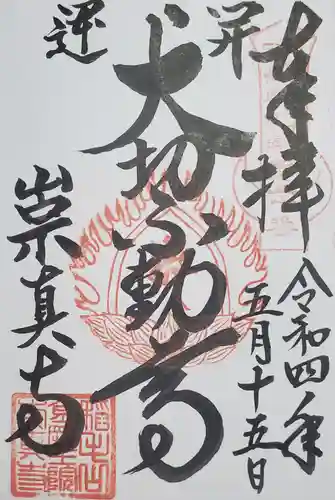 奉拝
令和四年
五月十五日
昇運
大切不動尊
崇真寺